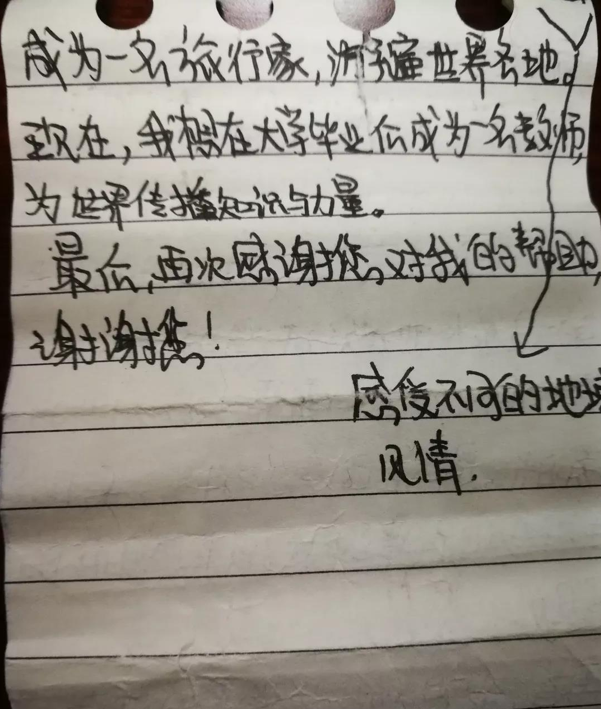 成为一名旅行家，游历遍世界各地。
现在，我想在大学毕业后成为一名教师，
为世界传播知识与力量。
最后，再次感谢您对我的帮助，
谢谢您！
感受不同的地域
风情.